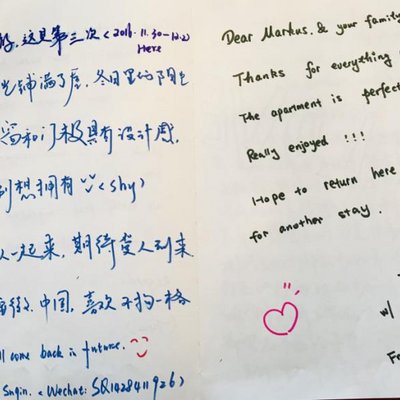 这是第三次 <2016.11.30-12.2)
Here
铺满了屋. 冬日里的阳
和门极具有设计感.
到想拥有 <shy>
一起来, 期待爱人到来
中国, 喜欢不拘一格
come back is future.
<Wechat: SQ1428411926)
Dear Markus. & your family
Thanks for everything
The apartment is perfect
Really enjoyed !!!
Hope to return here
for another stay.
w/